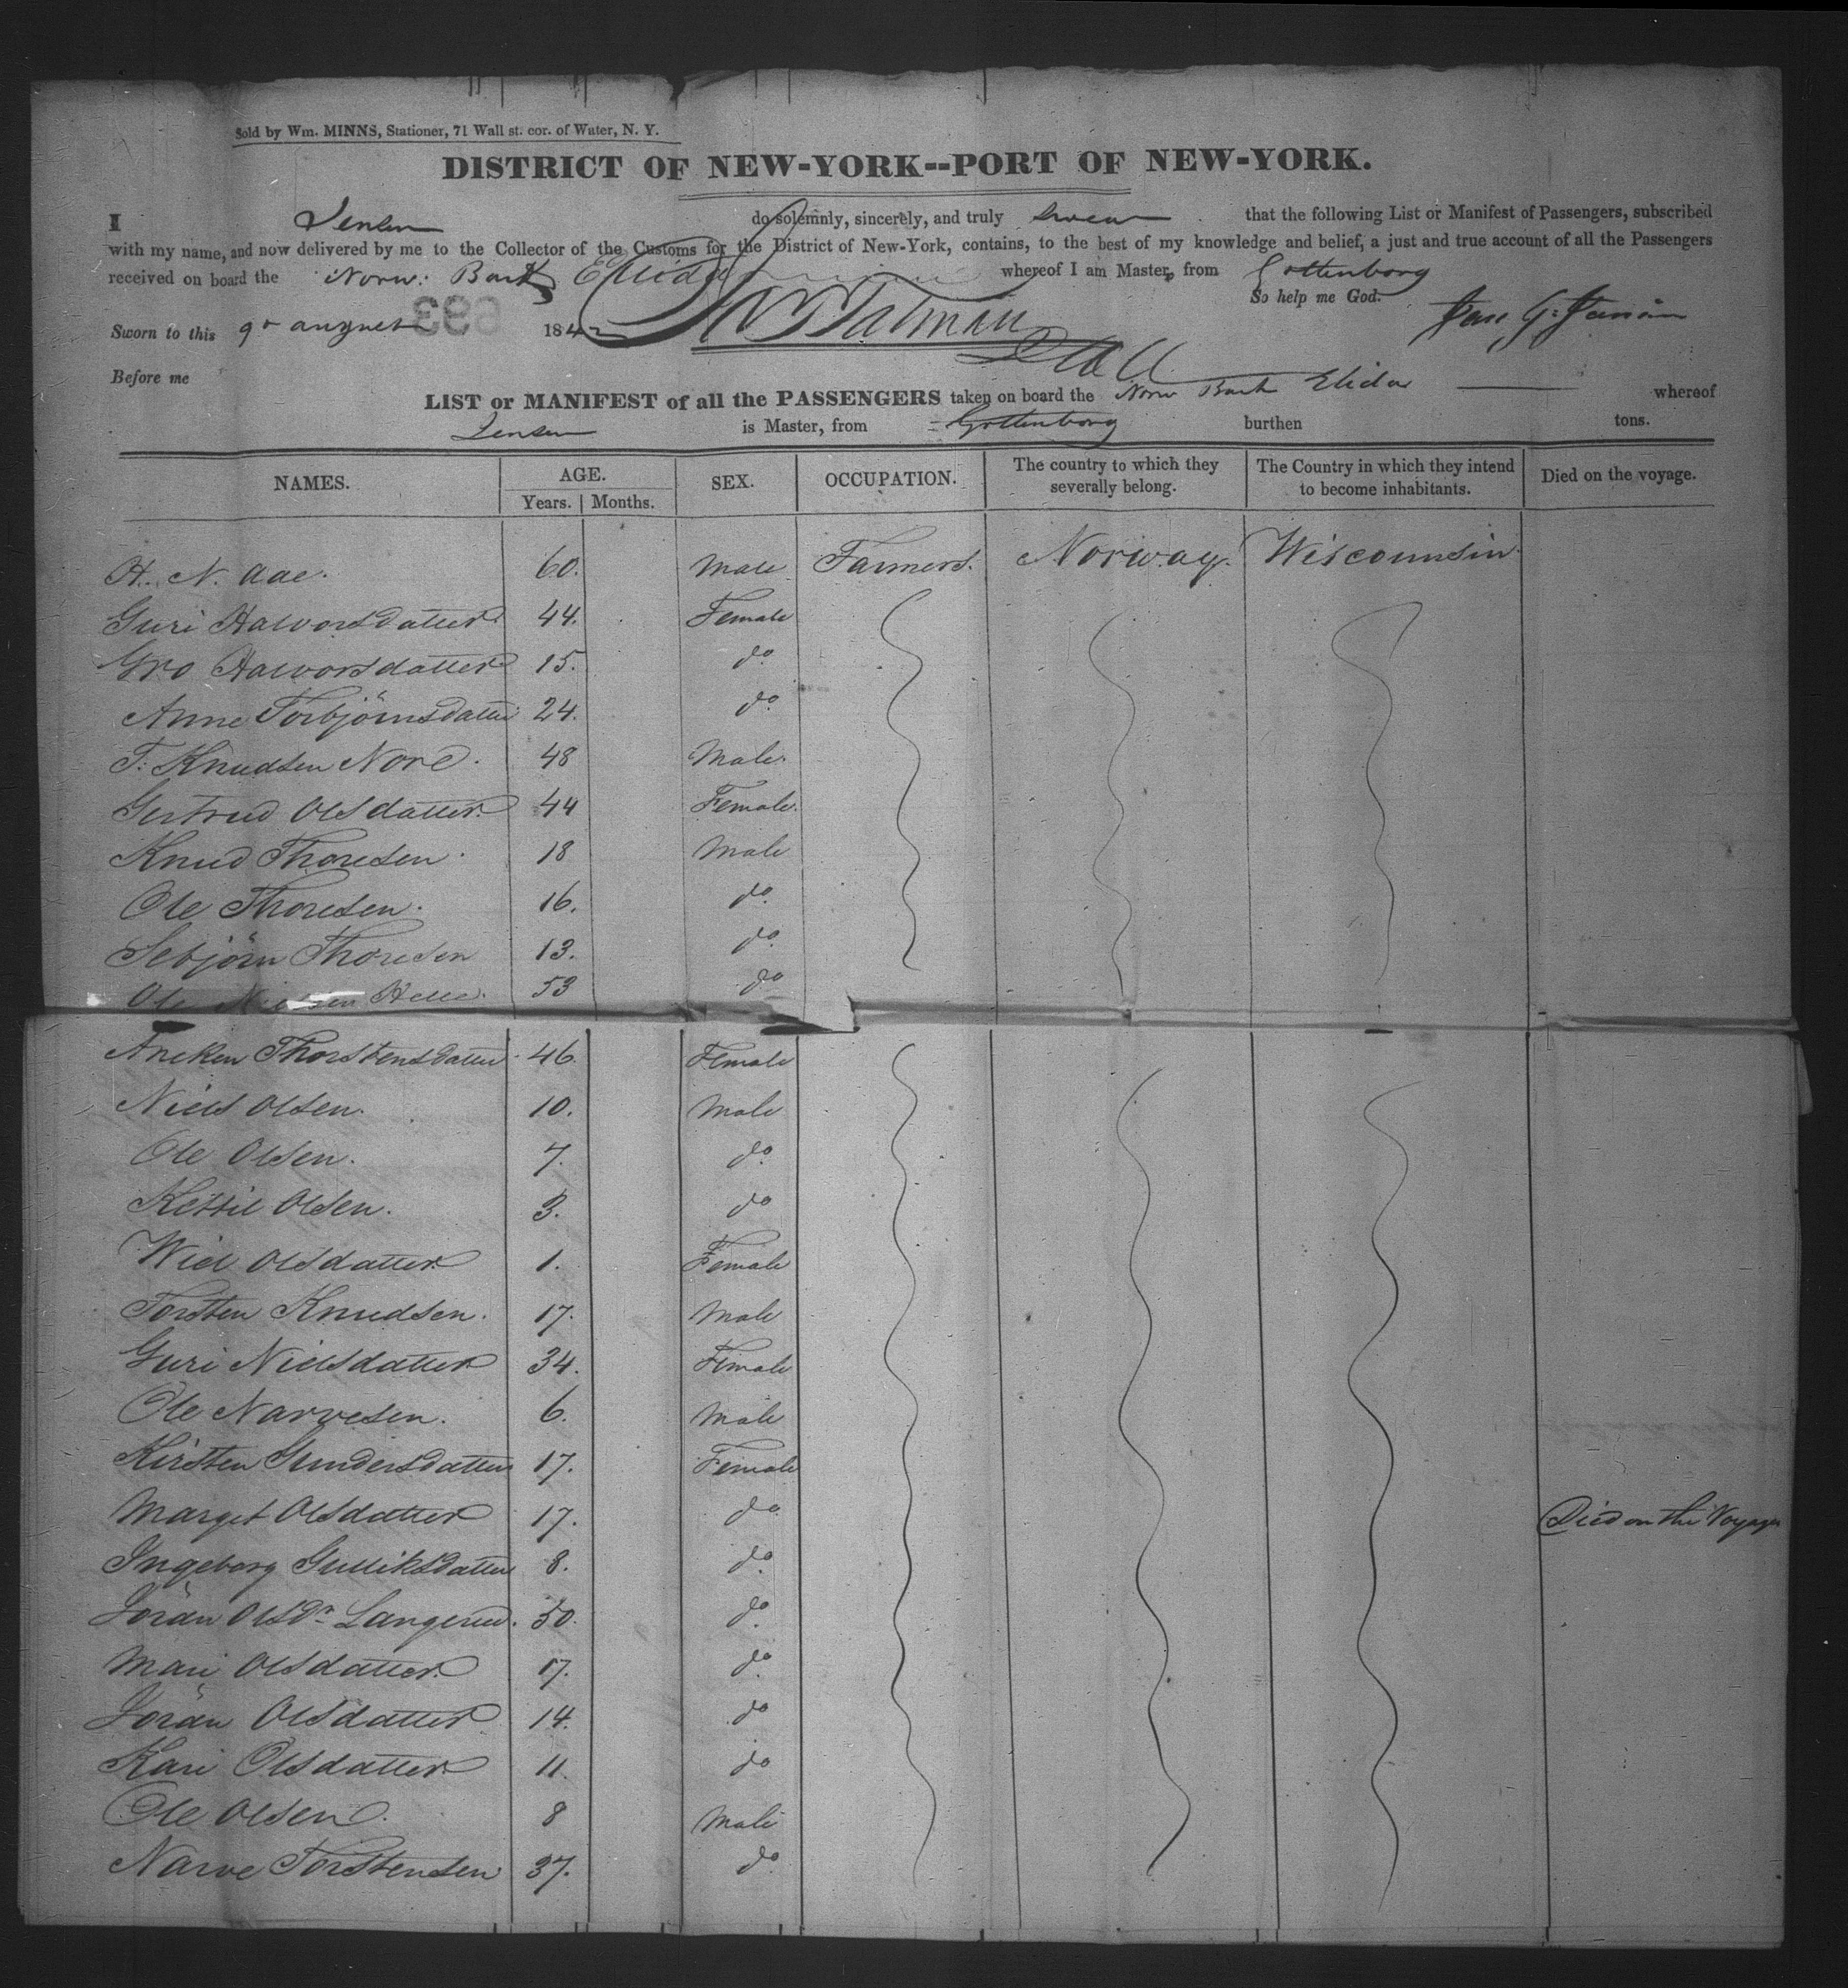 Sold by Wm. MINNS, Stationer, 71 Wall st. cor. of Water, N. Y.
DISTRICT OF NEW-YORK--PORT OF NEW-YORK.
I Jensen do solemnly, sincerely, and truly swear that the following List or Manifest of Passengers, subscribed
with my name, and now delivered by me to the Collector of the Customs for the District of New-York, contains, to the best of my knowledge and belief, a just and true account of all the Passengers
received on board the Norw: Bark Elida whereof I am Master, from Gottenborg
So help me God.
Sworn to this 9 august 1842
693
Before me
LIST or MANIFEST of all the PASSENGERS taken on board the Norw Bark Elida whereof
Jensen is Master, from Gottenborg burthen tons.
NAMES. AGE. Years. Months. SEX. OCCUPATION. The country to which they severally belong. The Country in which they intend to become inhabitants. Died on the voyage.
H. N. Aae. 60. Male Farmers. Norway. Wisconnsin.
Guri Halvorsdatter. 44. Female
Gro Halvorsdatter 15. do
Anne Torbjörnsdatter 24. do
T. Knudsen Nore. 48 Male.
Gertrud Olsdatter. 44 Female.
Knud Thoresen. 18 Male
Ole Thoresen. 16. do
Sebjörn Thoresen 13. do
Ole Nielsen Helle. 53 do
Aneken Thorstensdatter 46. Female
Niels Olsen. 10. Male
Ole Olsen. 7. do
Kettil Olsen. 3. do
Wiel Olsdatter. 1. Female
Torsten Knudsen. 17. Male
Guri Nielsdatter 34. Female
Ole Narvesen. 6. Male
Kirsten Gundersdatter 17. Female
Marget Olsdatter 17. do Died on the Voyage
Ingeborg Gulliksdatter 8. do
Jörän Olsdr Langerud. 50. do
Mari Olsdatter. 17. do
Jörän Olsdatter 14. do
Kari Olsdatter 11. do
Ole Olsen. 8 Male
Narve Torstensen 37. do